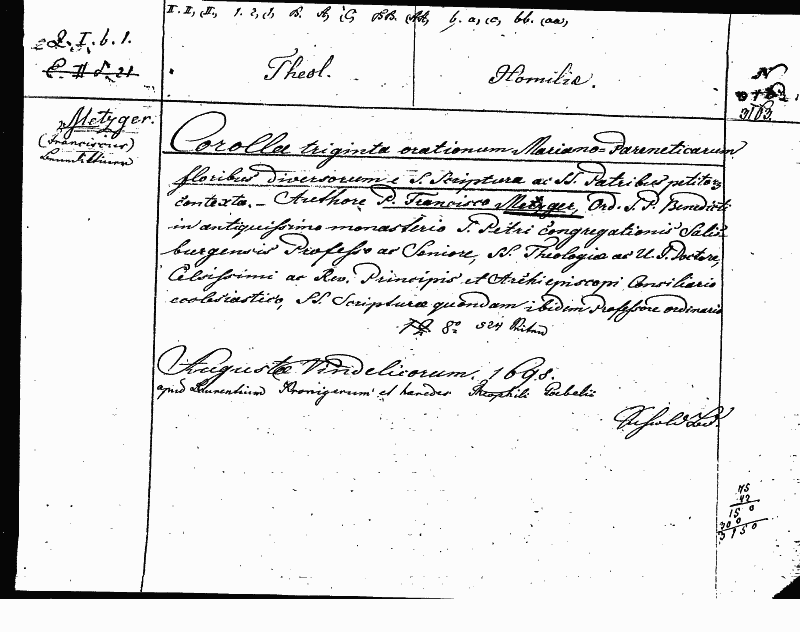 II. II, (II, 1. 2, (3, B. A, (C, BB. (AA, b. a, (c, bb. (aa,
2. I. b. 1.
Theol.
Homiliæ.
N
3103
Metzger.
(Franciscus)
Corolla triginta orationum Mariano-Pareneticarum
floribus diversorum e S. Scriptura ac SS. Patribus petitorum
contexta. – Authore P. Francisco Metzger, Ord. S. P. Benedicti
in antiquissimo monasterio S. Petri Congregationis Salis-
burgensis Professo ac Seniore, SS. Theologiæ ac U. J. Doctore,
Celsissimi ac Rev. Principis et Archiepiscopi Consiliario
ecclesiastico, SS. Scripturæ quondam ibidem Professore ordinario
8° 524 Seiten
Augustæ Vindelicorum. 1698.
apud Laurentium Kronigerum et haredes Theophili Goebelii
75
42
150
300
3150